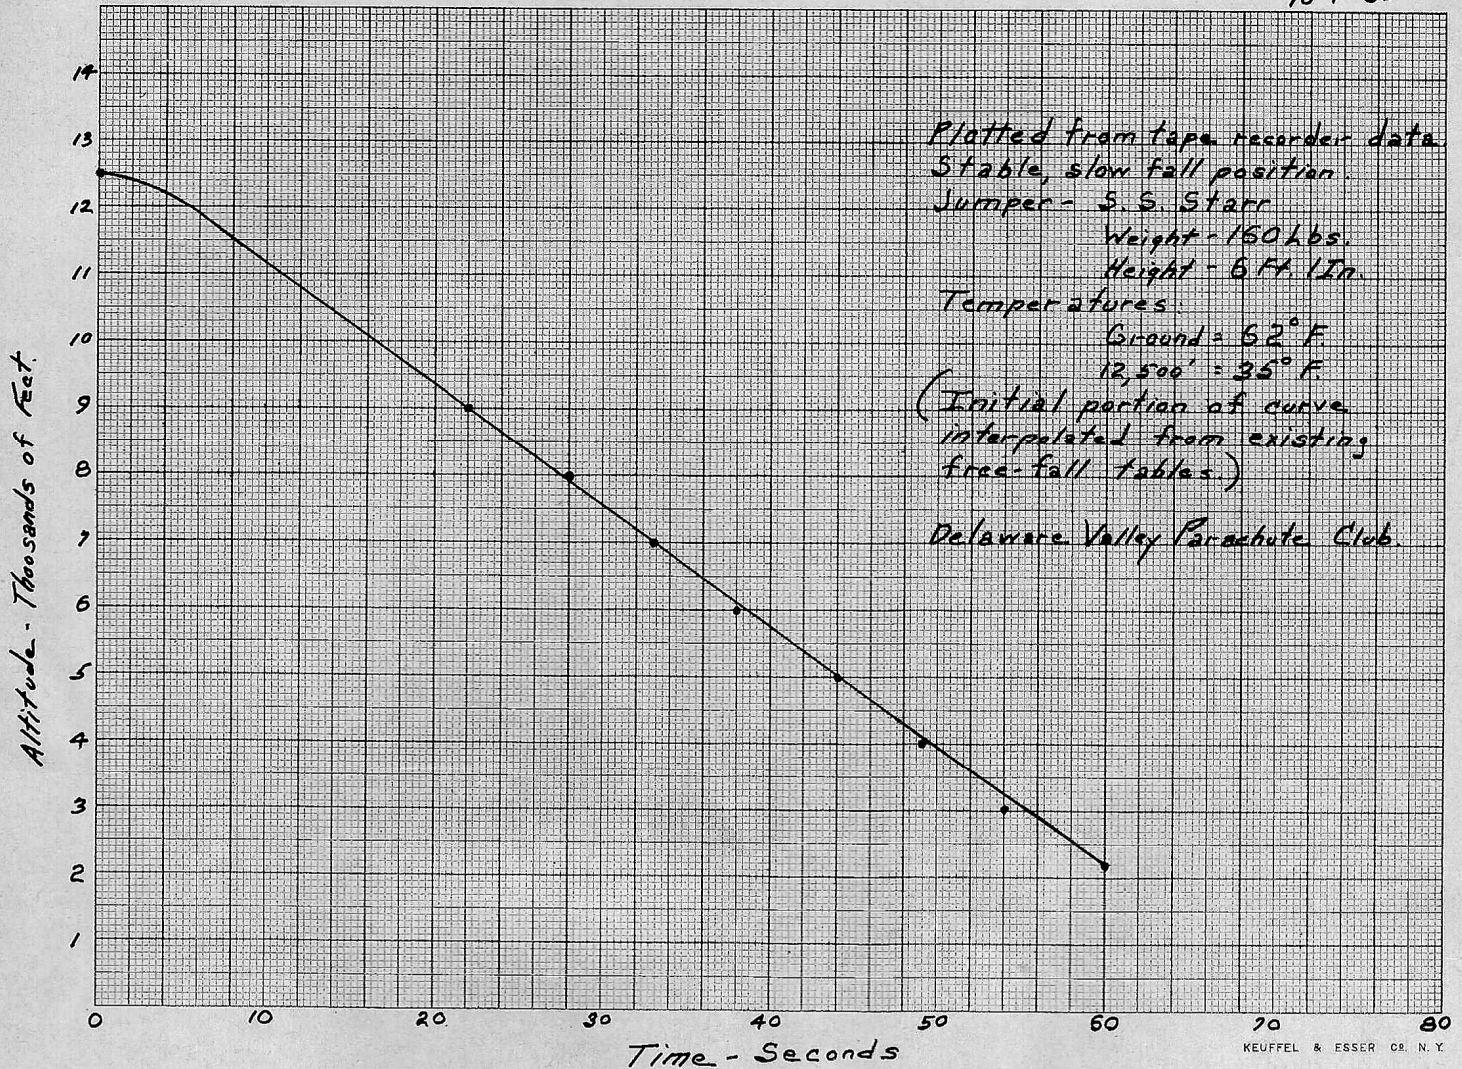 14
13
12
11
10
9
8
7
6
5
4
3
2
1
Altitude - Thousands of Feet.
Plotted from tape recorder data
Stable, slow fall position.
Jumper - S. S. Starr
Weight - 160 Lbs.
Height - 6 Ft. 1 In.
Temperatures:
Ground = 62° F.
12,500' = 35° F.
(Initial portion of curve
interpolated from existing
free-fall tables.)
Delaware Valley Parachute Club.
0 10 20 30 40 50 60 70 80
Time - Seconds
KEUFFEL & ESSER CO. N. Y.